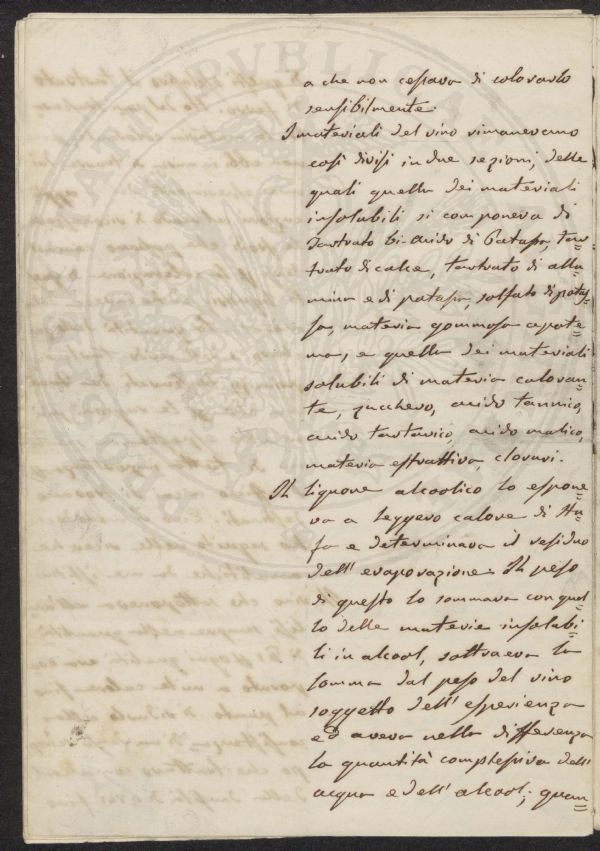 a che non cessava di colorarlo
sensibilmente.
I materiali del vino rimanevano
così divisi in due sezioni, delle
quali quella dei materiali
insolubili si componeva di
Tartrato bi-acido di Potassa, tar=
trato di calce, tartrato di allu=
mina e di potassa, solfato di potas=
sa, materia gommosa apote=
ma, e quella dei materiali
solubili di materia coloran=
te, zucchero, acido tannico,
acido tartarico, acido malico,
materia estrattiva, cloruri.
Il liquore alcoolico lo espone=
va a leggero calore di stu=
fa e determinava il residuo
dell'evaporazione. Il peso
di questo lo sommava con quel=
lo delle materie insolubi=
li in alcool, sottraeva la
somma dal peso del vino
soggetto dell'esperienza
ed aveva nella differenza
la quantità complessiva dell'
acqua e dell'alcool; quan=